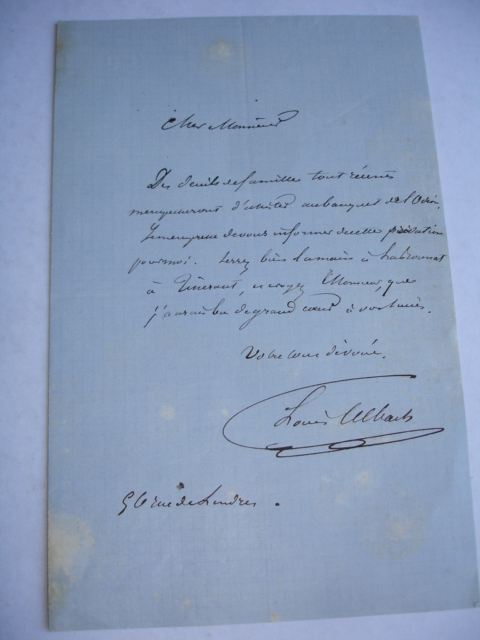 Cher Monsieur
Des deuils de famille tout récents
m'empêcheront d'assister au banquet de l'
Je m'empresse de vous informer de cette privation
pour moi. Serrez bien la main à
à et croyez Monsieur, que
j'aurai bu de grand cœur à
Votre tout dévoué.
Louis Ulbach
rue de Londres.